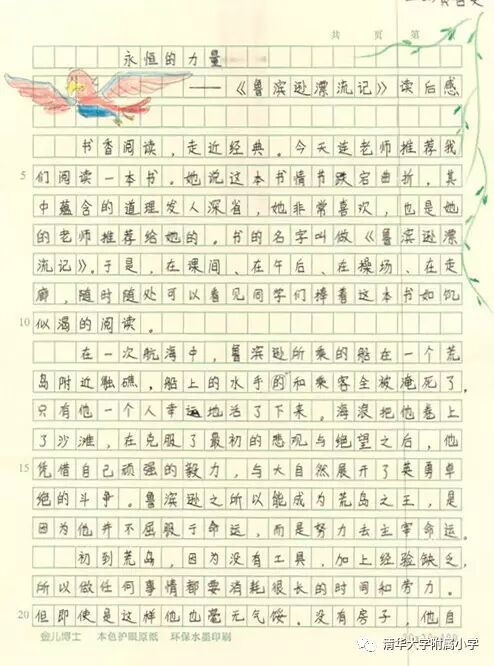 共 页 第
永恒的力量
——《鲁滨逊漂流记》读后感
书香阅读，走近经典。今天连老师推荐我
5 们阅读一本书。她说这本书情节跌宕曲折，其
中蕴含的道理发人深省，她非常喜欢，也是她
的老师推荐给她的。书的名字叫做《鲁滨逊漂
流记》。于是，在课间、在午后、在操场、在走
廊，随时随处可以看见同学们捧着这本书如饥
10 似渴的阅读。
在一次航海中，鲁滨逊所乘的船在一个荒
岛附近触礁，船上的水手的和乘客全被淹死了，
只有他一个人幸运地活了下来。海浪把他卷上
了沙滩，在克服了最初的悲观与绝望之后，他
15 凭借自己顽强的毅力，与大自然展开了英勇卓
绝的斗争。鲁滨逊之所以能成为荒岛之王，是
因为他并不屈服于命运，而是努力去主宰命运。
初到荒岛，因为没有工具，加上经验缺乏，
所以做任何事情都要消耗很长的时间和劳力。
20 但即使是这样他也毫无气馁。没有房子，他自
金儿博士 本色护眼原纸 环保水墨印刷
清华大学附属小学